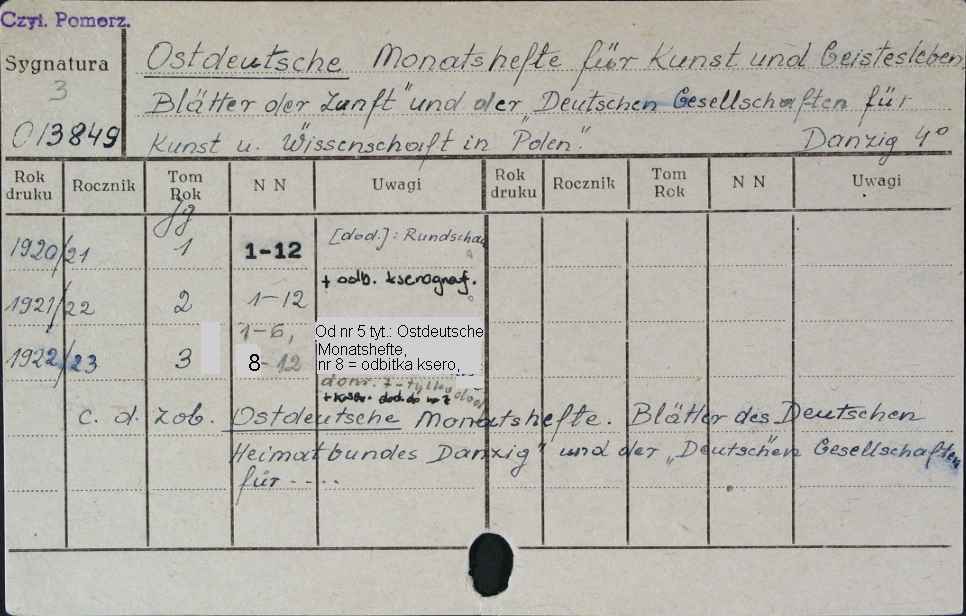 Czyt. Pomorz.
Sygnatura
3
013849
Ostdeutsche Monatshefte für Kunst und Geistesleben
Blätter der Zunft" und der „Deutschen Gesellschaften für
Kunst u. Wissenschaft in Polen". Danzig 4°
Rok druku Rocznik Tom Rok N N Uwagi Rok druku Rocznik Tom Rok N N Uwagi
Jg
1920/21 1 1-12 [dod.]: Rundschau
+ odb. kserograf.
1921/22 2 1-12
1-6,
1922/23 3 8-12 Od nr 5 tyt.: Ostdeutsche
Monatshefte,
nr 8 = odbitka ksero,
do nr. 7 - tylko dod
+ kser. dod. do nr 7
c. d. zob. Ostdeutsche Monatshefte. Blätter des Deutschen
Heimatbundes Danzig" und der „Deutschen Gesellschaften
für ----